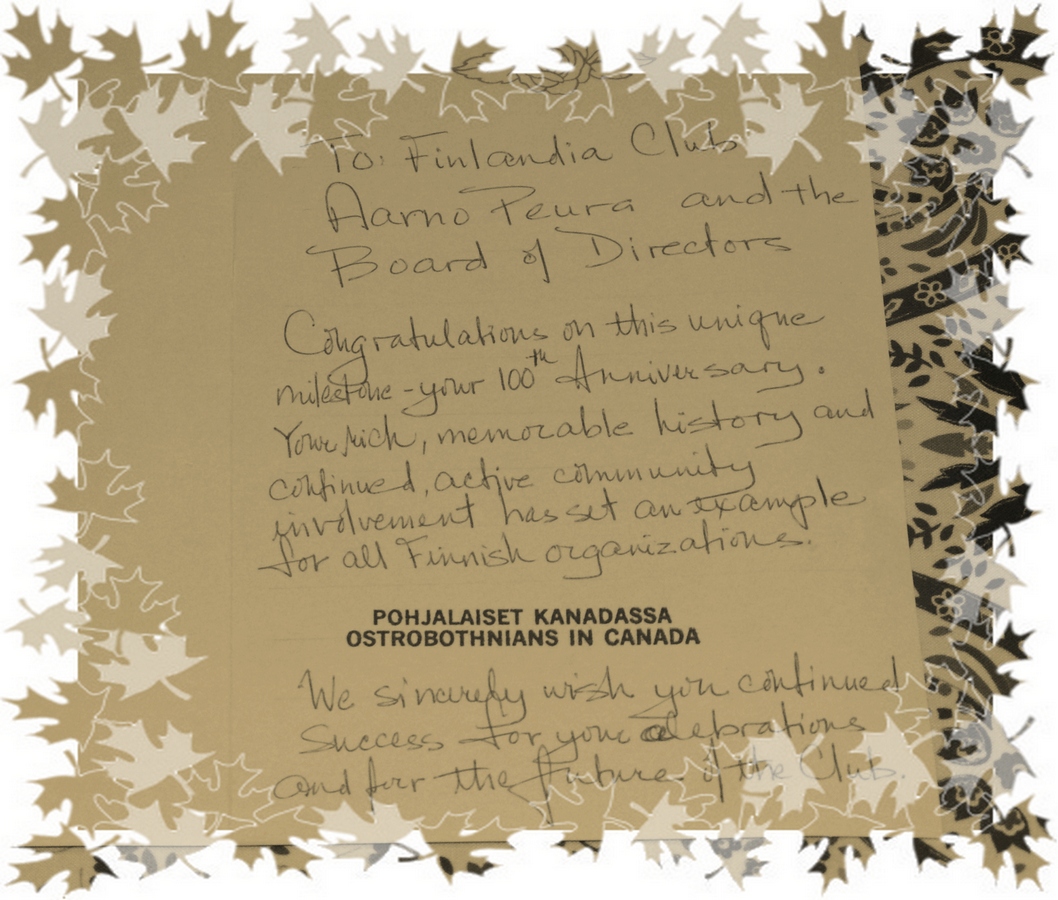 To: Finlandia Club
Aarno Peura and the
Board of Directors
Congratulations on this unique
milestone - your 100th Anniversary.
Your rich, memorable history and
continued, active community
involvement has set an example
for all Finnish organizations.
POHJALAISET KANADASSA
OSTROBOTHNIANS IN CANADA
We sincerely wish you continued
Success for your celebrations
and for the future of the Club.